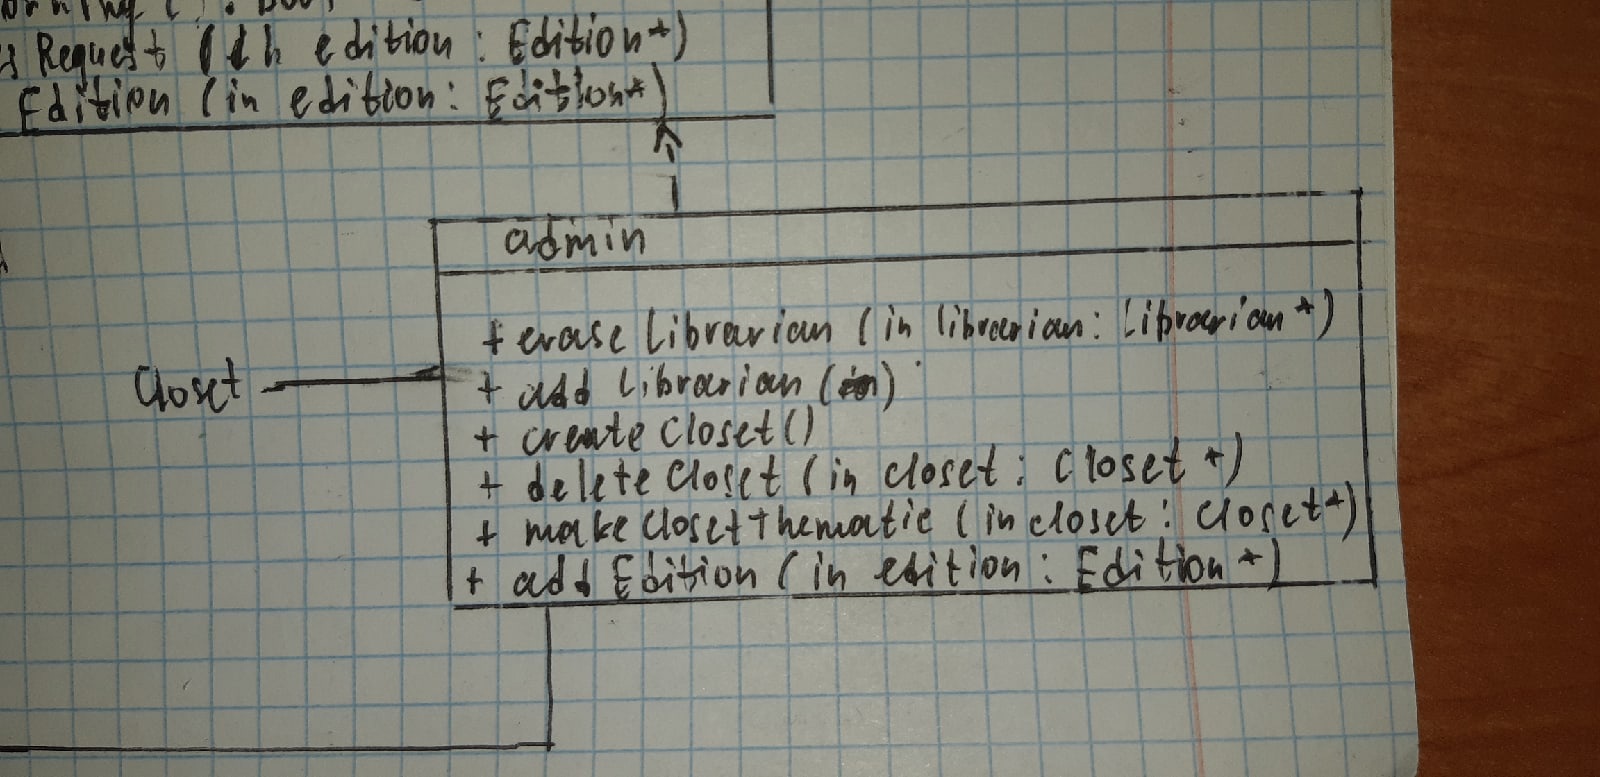 Request (in edition : Edition*)
Edition (in edition : Edition*)
admin
+ erase Librarian (in librarian : Librarian*)
Closet
+ add Librarian ()
+ create Closet()
+ delete Closet (in closet : Closet*)
+ make Closet Thematic (in closet : Closet*)
+ add Edition (in edition : Edition*)